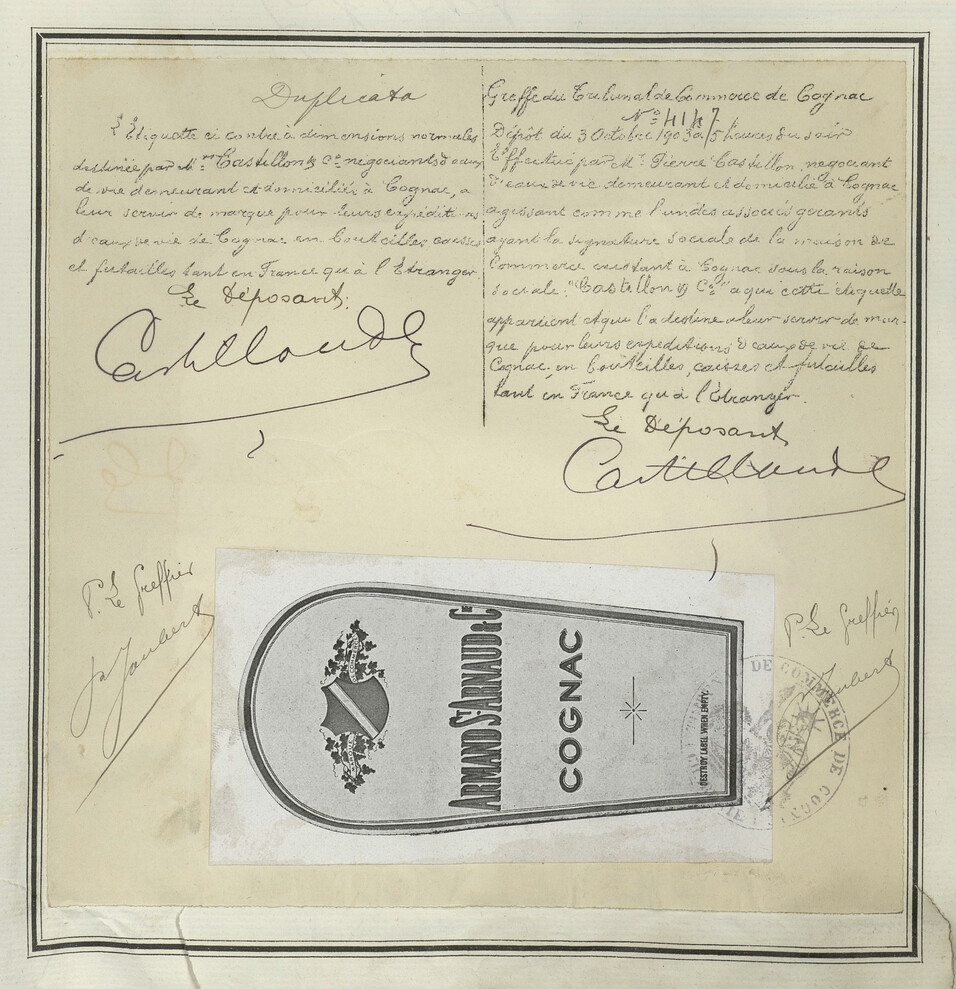 Duplicata
L'Etiquette ci contre à dimensions normales
destinée par Mrs Castillon & Co négociants d'eaux
de vie demeurant et domiciliés à Cognac, a
leur servir de marque pour leurs expéditions
d'eaux de vie de Cognac en bouteilles caisses
et futailles tant en France qu'à l'Etranger.
Le Déposant:
Greffe du Tribunal de Commerce de Cognac
No 4147
Dépôt du 3 Octobre 1903 à 5 heures du soir
Effectué par Mr Pierre Castillon, négociant
d'eaux de vie demeurant et domicilié à Cognac
agissant comme l'un des associés gérants
ayant la signature sociale de la maison de
Commerce existant à Cognac sous la raison
sociale: "Castillon & Co" a qui cette étiquette
appartient et qui l'a destine a leur servir de mar-
que pour leurs expéditions d'eaux de vie de
Cognac, en bouteilles, caisses et futailles
tant en France qu'à l'Etranger.
Le Déposant
P. Le Greffier
Joubert
ARMAND ST ARNAUD & CIE
COGNAC
DESTROY LABEL WHEN EMPTY.
P. Le Greffier
Joubert
DE COMMERCE DE COGNAC